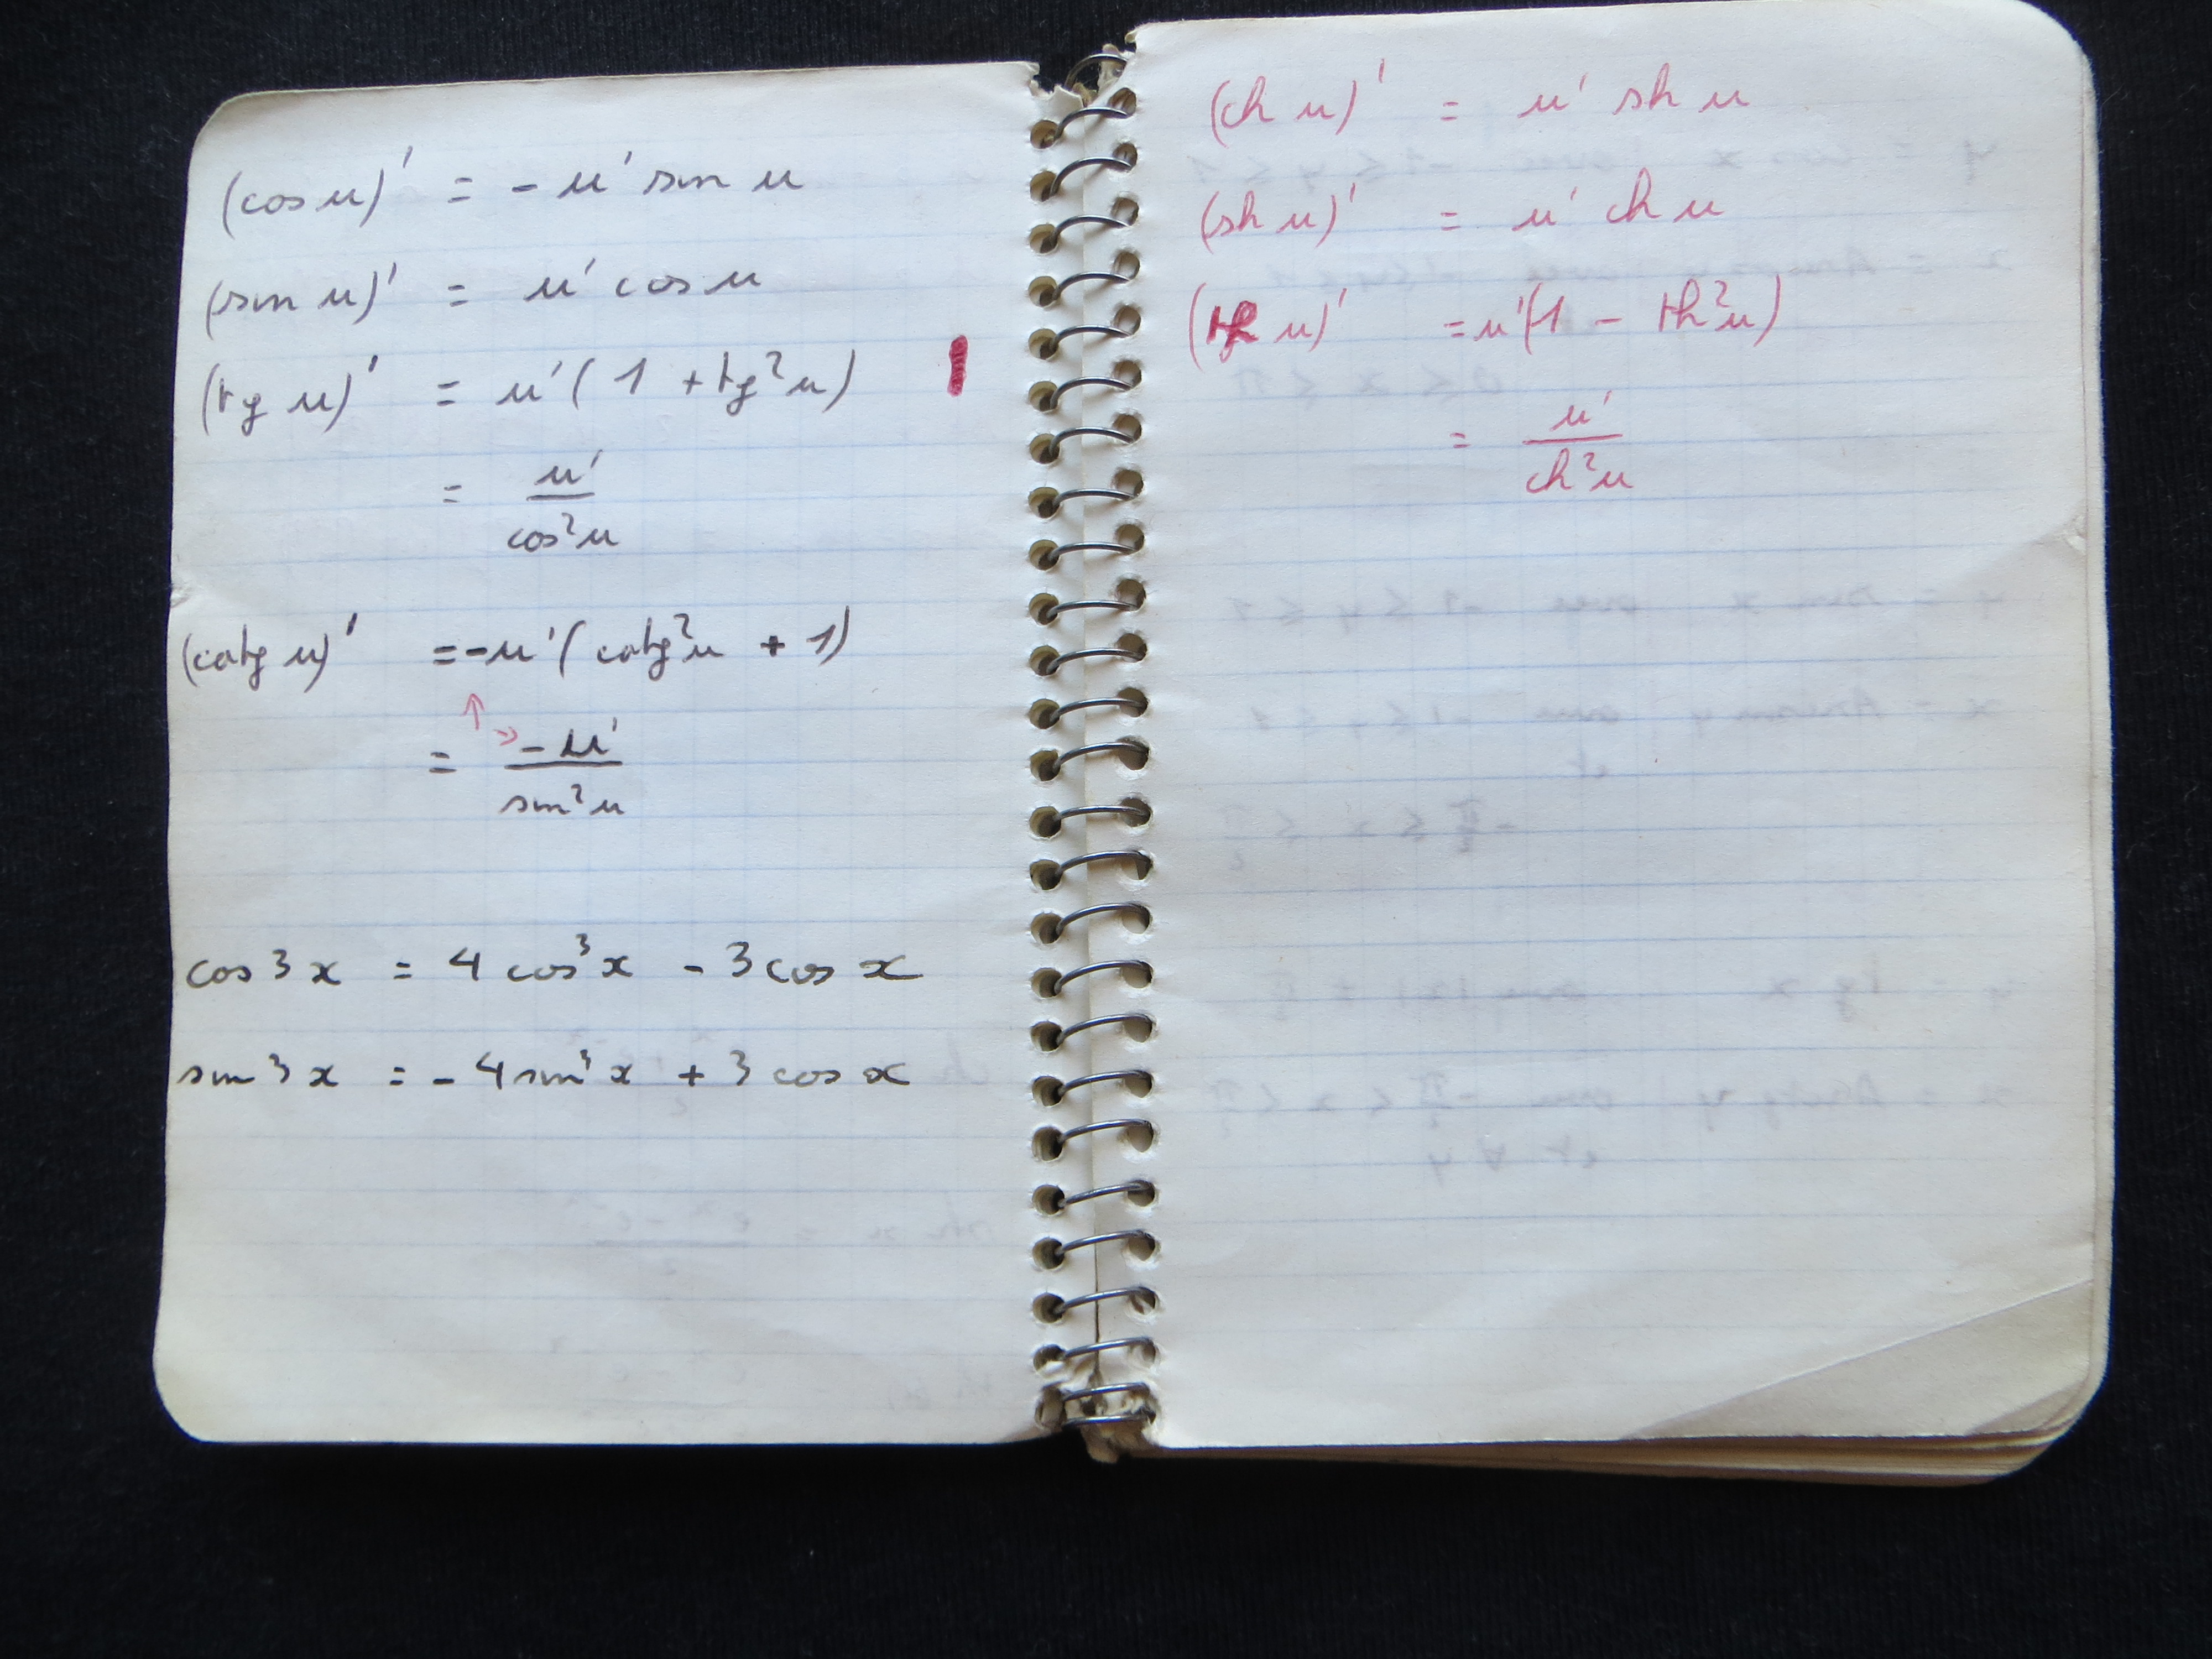 (cos u)' = - u' sin u
(sin u)' = u' cos u
(tg u)' = u' ( 1 + tg²u )
= u' / cos²u
(cotg u)' = -u' ( cotg²u + 1 )
= -u' / sin²u
cos 3x = 4 cos³x - 3 cos x
sin 3x = - 4 sin³x + 3 cos x
(ch u)' = u' sh u
(sh u)' = u' ch u
(th u)' = u' (1 - th²u)
= u' / ch²u